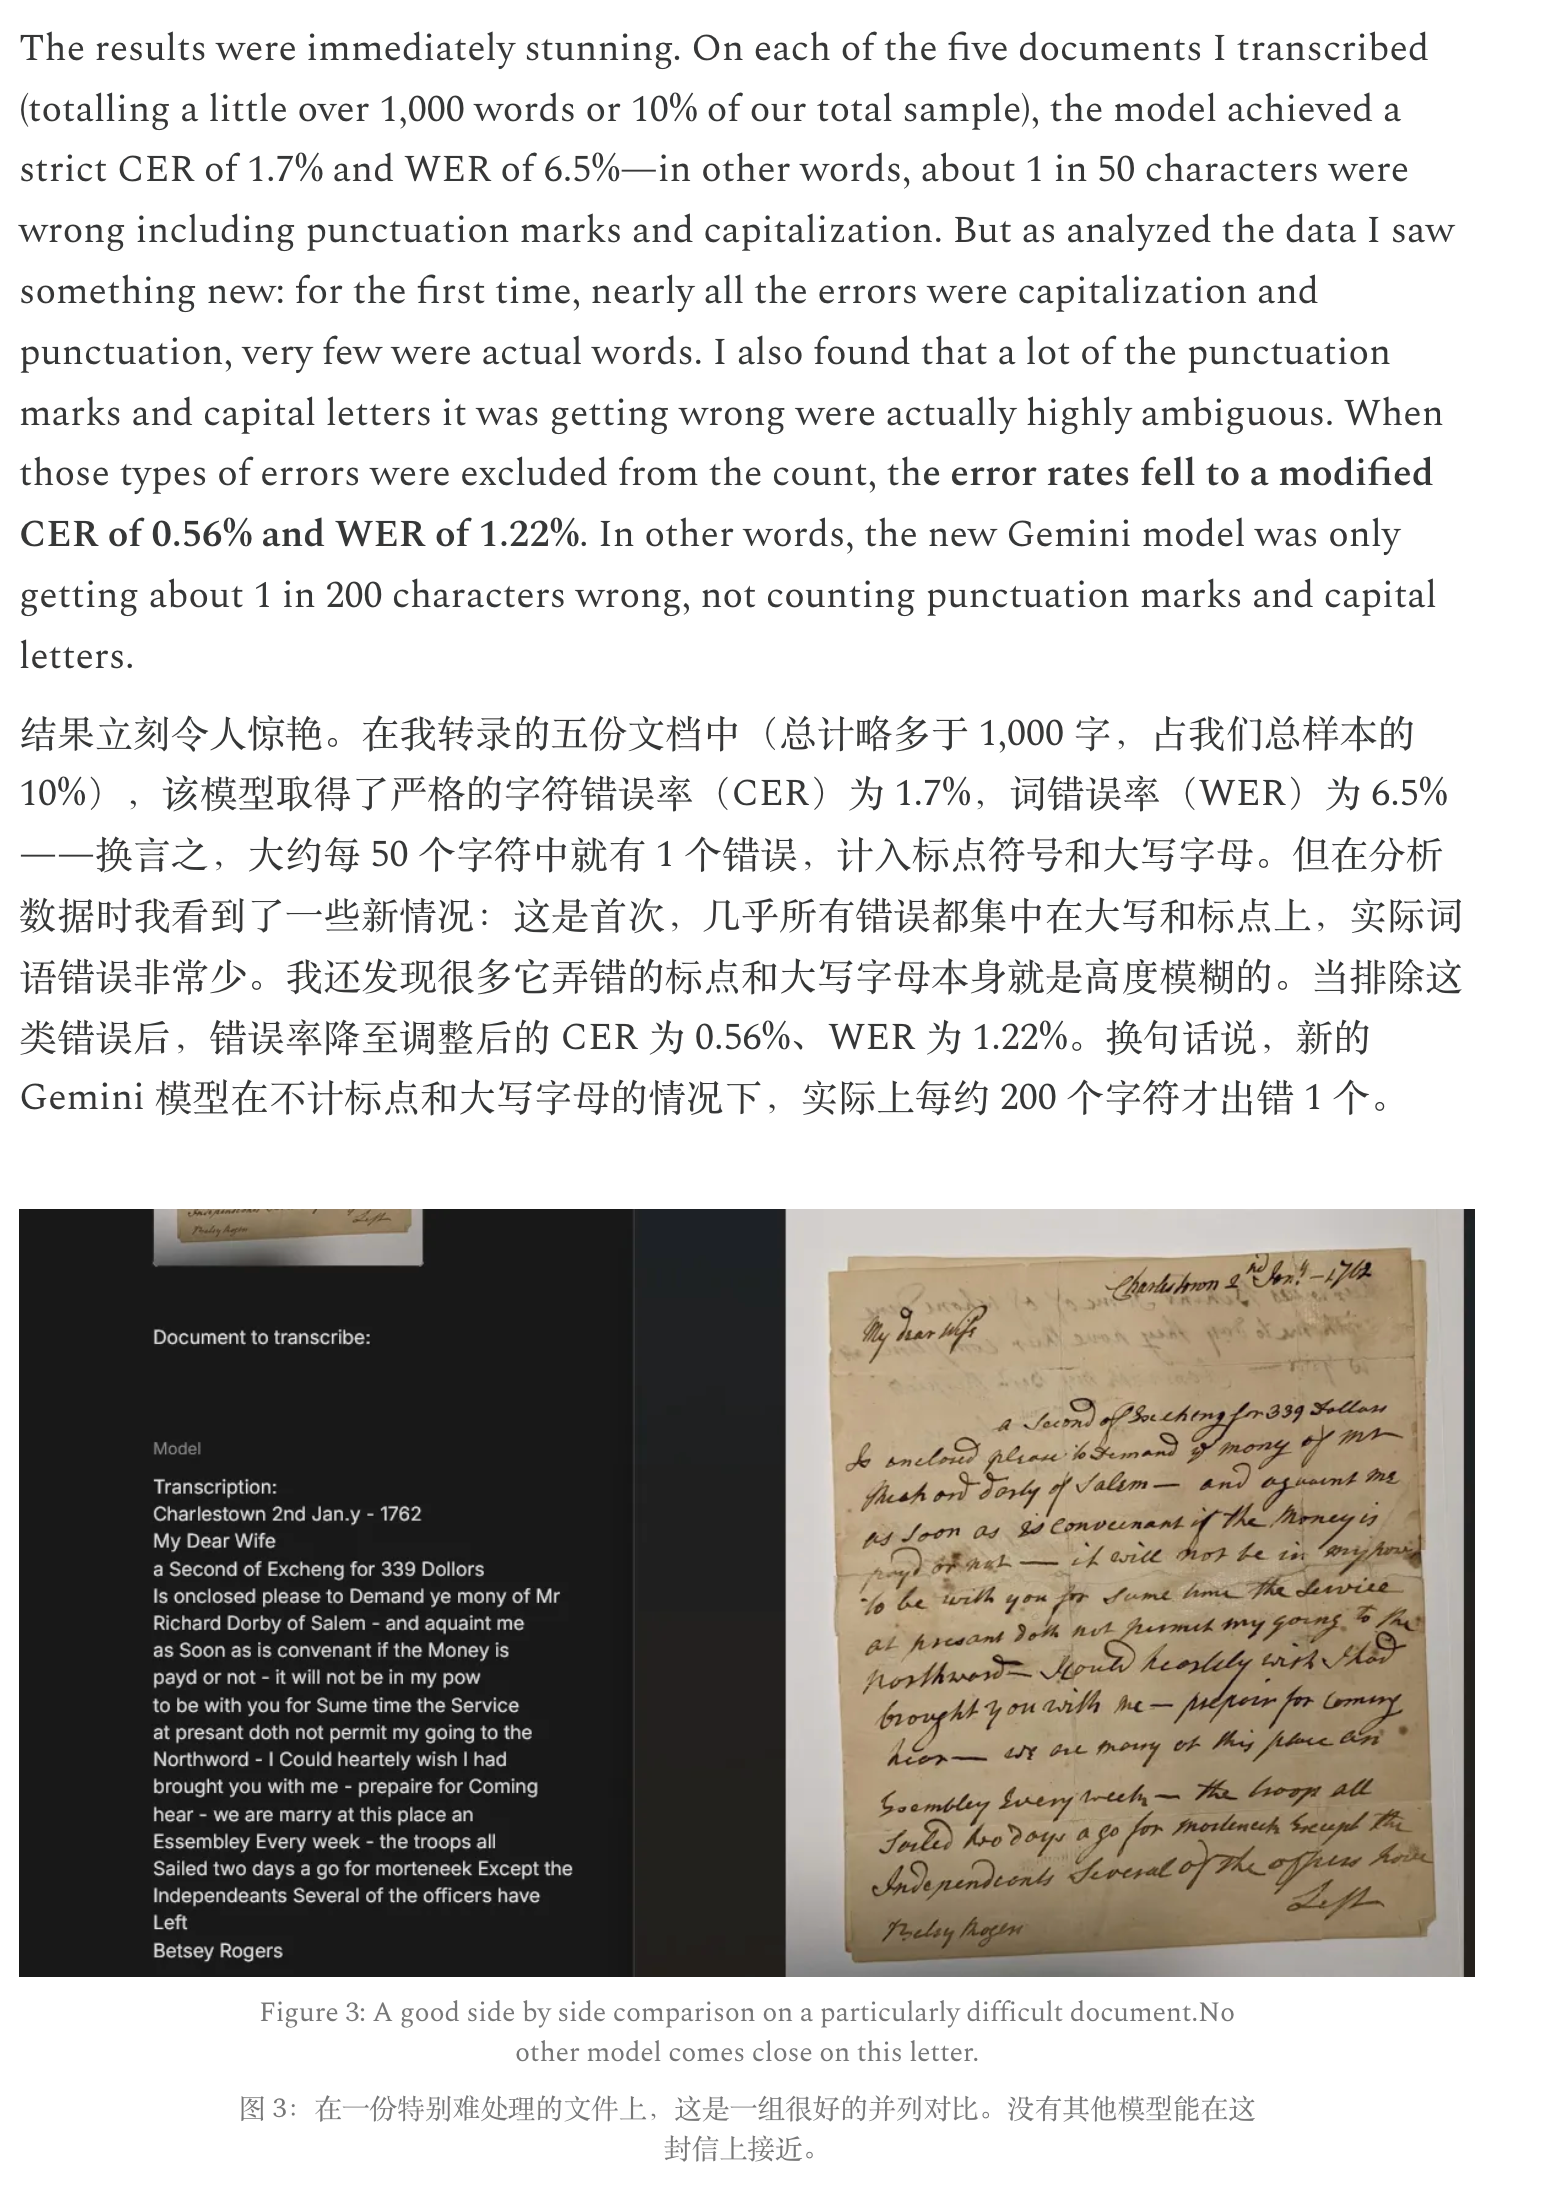 The results were immediately stunning. On each of the five documents I transcribed
(totalling a little over 1,000 words or 10% of our total sample), the model achieved a
strict CER of 1.7% and WER of 6.5%—in other words, about 1 in 50 characters were
wrong including punctuation marks and capitalization. But as analyzed the data I saw
something new: for the first time, nearly all the errors were capitalization and
punctuation, very few were actual words. I also found that a lot of the punctuation
marks and capital letters it was getting wrong were actually highly ambiguous. When
those types of errors were excluded from the count, the error rates fell to a modified
CER of 0.56% and WER of 1.22%. In other words, the new Gemini model was only
getting about 1 in 200 characters wrong, not counting punctuation marks and capital
letters.
结果立刻令人惊艳。在我转录的五份文档中（总计略多于 1,000 字，占我们总样本的
10%），该模型取得了严格的字符错误率（CER）为 1.7%，词错误率（WER）为 6.5%
——换言之，大约每 50 个字符中就有 1 个错误，计入标点符号和大写字母。但在分析
数据时我看到了一些新情况：这是首次，几乎所有错误都集中在大写和标点上，实际词
语错误非常少。我还发现很多它弄错的标点和大写字母本身就是高度模糊的。当排除这
类错误后，错误率降至调整后的 CER 为 0.56%、WER 为 1.22%。换句话说，新的
Gemini 模型在不计标点和大写字母的情况下，实际上每约 200 个字符才出错 1 个。
Left
Betsey Rogers
Document to transcribe:
Model
Transcription:
Charlestown 2nd Jan.y - 1762
My Dear Wife
a Second of Excheng for 339 Dollors
Is onclosed please to Demand ye mony of Mr
Richard Dorby of Salem - and aquaint me
as Soon as is convenant if the Money is
payd or not - it will not be in my pow
to be with you for Sume time the Service
at presant doth not permit my going to the
Northword - I Could heartely wish I had
brought you with me - prepaire for Coming
hear - we are marry at this place an
Essembley Every week - the troops all
Sailed two days a go for morteneek Except the
Independeants Several of the officers have
Left
Betsey Rogers
Charlestown 2nd Jan.y - 1762
My dear wife
a Second of Excheng for 339 Dollars
Is onclosed please to Demand ye mony of Mr
Richard Darby of Salem — and aquaint me
as Soon as is convenant if the Money is
payd or not — it will not be in my pow
to be with you for Sume time the Service
at presant doth not permit my going to the
Northward — I Could heartely wish I had
brought you with me — prepair for Coming
hear — we are marry at this place an
Essembley Every week — the troops all
Sailed two days a go for morteneek Except the
Independeants Several of the officers have
Left
Betsey Rogers
Figure 3: A good side by side comparison on a particularly difficult document.No
other model comes close on this letter.
图 3：在一份特别难处理的文件上，这是一组很好的并列对比。没有其他模型能在这
封信上接近。